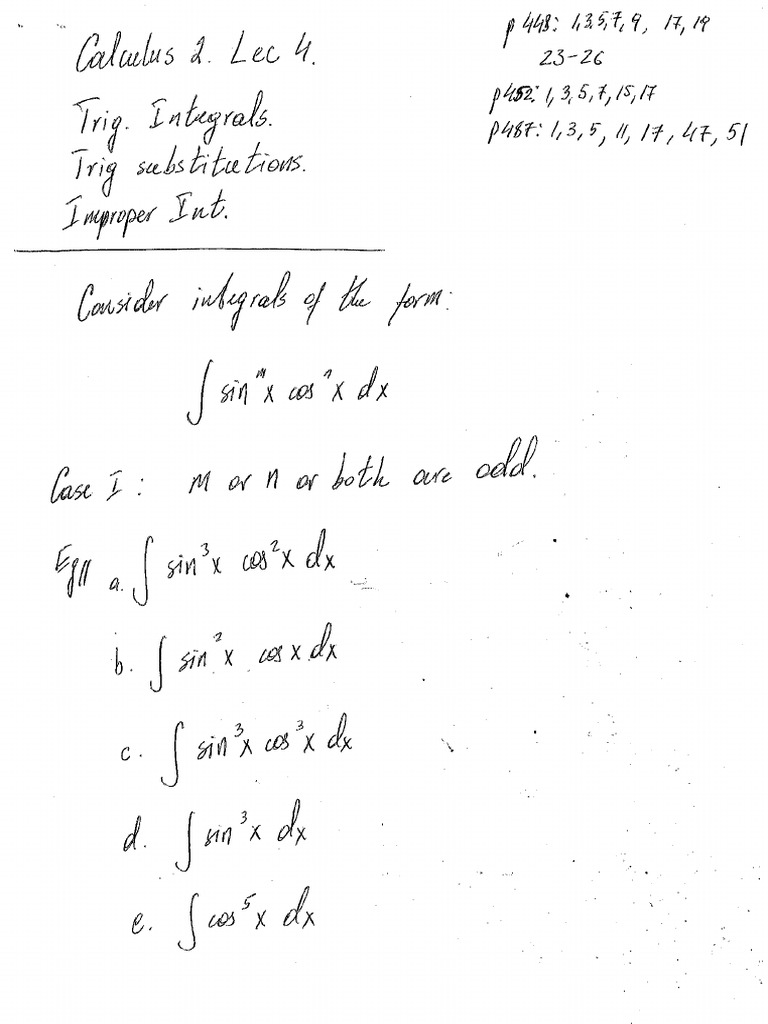 Calculus 2. Lec 4.
Trig. Integrals.
Trig substitutions.
Improper Int.
p 448: 1,3,5,7,9, 17, 19
23-26
p452: 1,3,5,7,15,17
p487: 1,3,5, 11, 17, 47, 51
Consider integrals of the form:
∫ sin^m x cos^n x dx
Case I: m or n or both are odd.
Eg// a. ∫ sin³x cos²x dx
b. ∫ sin²x cos x dx
c. ∫ sin³x cos³x dx
d. ∫ sin³x dx
e. ∫ cos⁵x dx